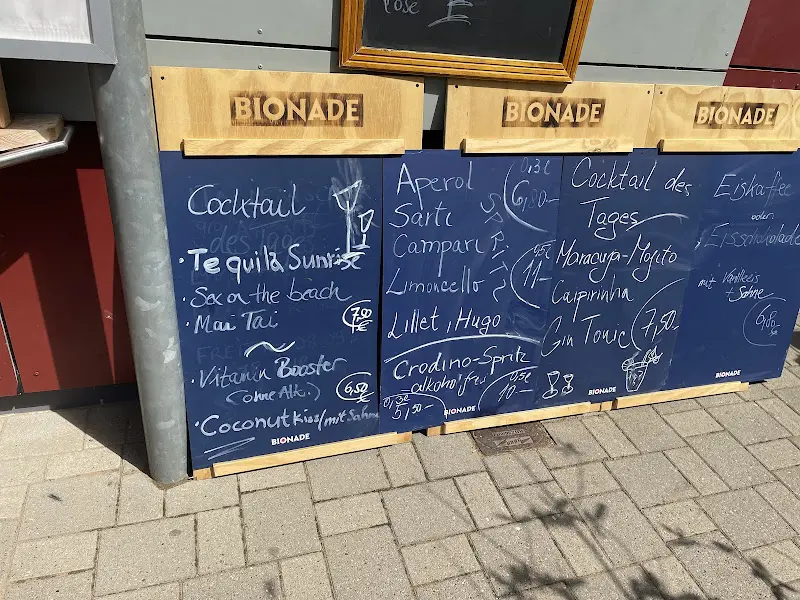 BIONADE
Cocktail
• Tequila Sunrise
• Sex on the beach
• Mai Tai
7,00
€
• Vitamin Booster
(ohne Alk.)
6,50
€
• Coconutkiss/mit Sahne
BIONADE
BIONADE
Aperol
Sarti
Campari
Limoncello
Lillet, Hugo
SPRITZ
0,3l
6,80-
0,5l
11,-
Crodino-Spritz
alkoholfrei
0,3l
5,50-
0,5l
10-
BIONADE
Cocktail des
Tages
Maracuja-Mojito
Caipirinha
Gin Tonic
7,50-
BIONADE
BIONADE
Eiskaffee
oder
Eisschokolade
mit Vanilleeis
+ Sahne
6,80
BIONADE